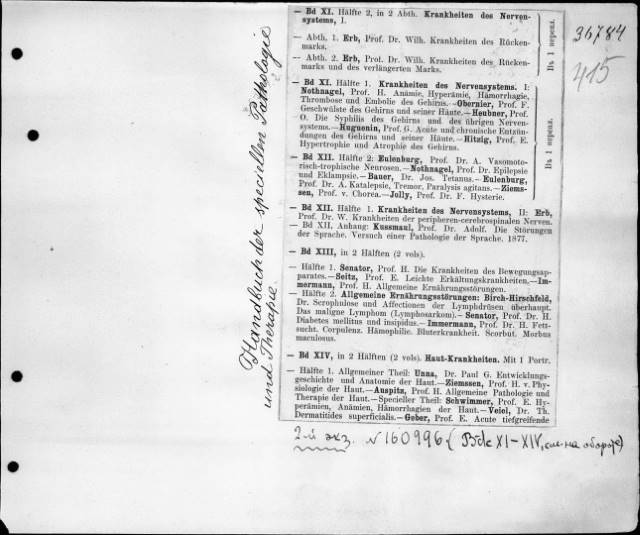 Handbuch der speciellen Pathologie
und Therapie.
— Bd XI. Hälfte 2, in 2 Abth. Krankheiten des Nerven-
systems, I.
— Abth. 1. Erb, Prof. Dr. Wilh. Krankheiten des Rücken-
marks.
— Abth. 2. Erb, Prof. Dr. Wilh. Krankheiten des Rücken-
marks und des verlängerten Marks.
Въ 1 перепл.
36784
415
— Bd XI. Hälfte 1. Krankheiten des Nervensystems. I:
Nothnagel, Prof. H. Anämie, Hyperämie, Hämorrhagie,
Thrombose und Embolie des Gehirns.—Obernier, Prof. F.
Geschwülste des Gehirns und seiner Häute.—Heubner, Prof.
O. Die Syphilis des Gehirns und des übrigen Nerven-
systems.—Huguenin, Prof. G. Acute und chronische Entzün-
dungen des Gehirns und seiner Häute.—Hitzig, Prof. E.
Hypertrophie und Atrophie des Gehirns.
— Bd XII. Hälfte 2: Eulenburg, Prof. Dr. A. Vasomoto-
risch-trophische Neurosen.—Nothnagel, Prof. Dr. Epilepsie
und Eklampsie.—Bauer, Dr. Jos. Tetanus.—Eulenburg,
Prof. Dr. A. Katalepsie, Tremor, Paralysis agitans.—Ziems-
sen, Prof. v. Chorea.—Jolly, Prof. Dr. F. Hysterie.
Въ 1 перепл.
— Bd XII. Hälfte 1. Krankheiten des Nervensystems, II: Erb,
Prof. Dr. W. Krankheiten der peripheren-cerebrospinalen Nerven.
— Bd XII. Anhang: Kussmaul, Prof. Dr. Adolf. Die Störungen
der Sprache. Versuch einer Pathologie der Sprache. 1877.
— Bd XIII, in 2 Hälften (2 vols).
— Hälfte 1. Senator, Prof. H. Die Krankheiten des Bewegungsap-
parates.—Seitz, Prof. E. Leichte Erkältungskrankheiten.—Im-
mermann, Prof. H. Allgemeine Ernährungsstörungen.
— Hälfte 2. Allgemeine Ernährungsstörungen: Birch-Hirschfeld,
Dr. Scrophulose und Affectionen der Lymphdrüsen überhaupt.
Das maligne Lymphom (Lymphosarkom).—Senator, Prof. Dr. H.
Diabetes mellitus und insipidus.—Immermann, Prof. Dr. H. Fett-
sucht. Corpulenz. Hämophilie. Bluterkrankheit. Scorbut. Morbus
maculosus.
— Bd XIV, in 2 Hälften (2 vols). Haut-Krankheiten. Mit 1 Portr.
— Hälfte 1. Allgemeiner Theil: Unna, Dr. Paul G. Entwicklungs-
geschichte und Anatomie der Haut.—Ziemssen, Prof. H. v. Phy-
siologie der Haut.—Auspitz, Prof. H. Allgemeine Pathologie und
Therapie der Haut.—Specieller Theil: Schwimmer, Prof. E. Hy-
perämien, Anämien, Hämorrhagien der Haut.—Veiel, Dr. Th.
Dermatitides superficialis.—Geber, Prof. E. Acute tiefgreifende
2-й экз. № 160996 (Bde XI-XIV, см. на обороте)